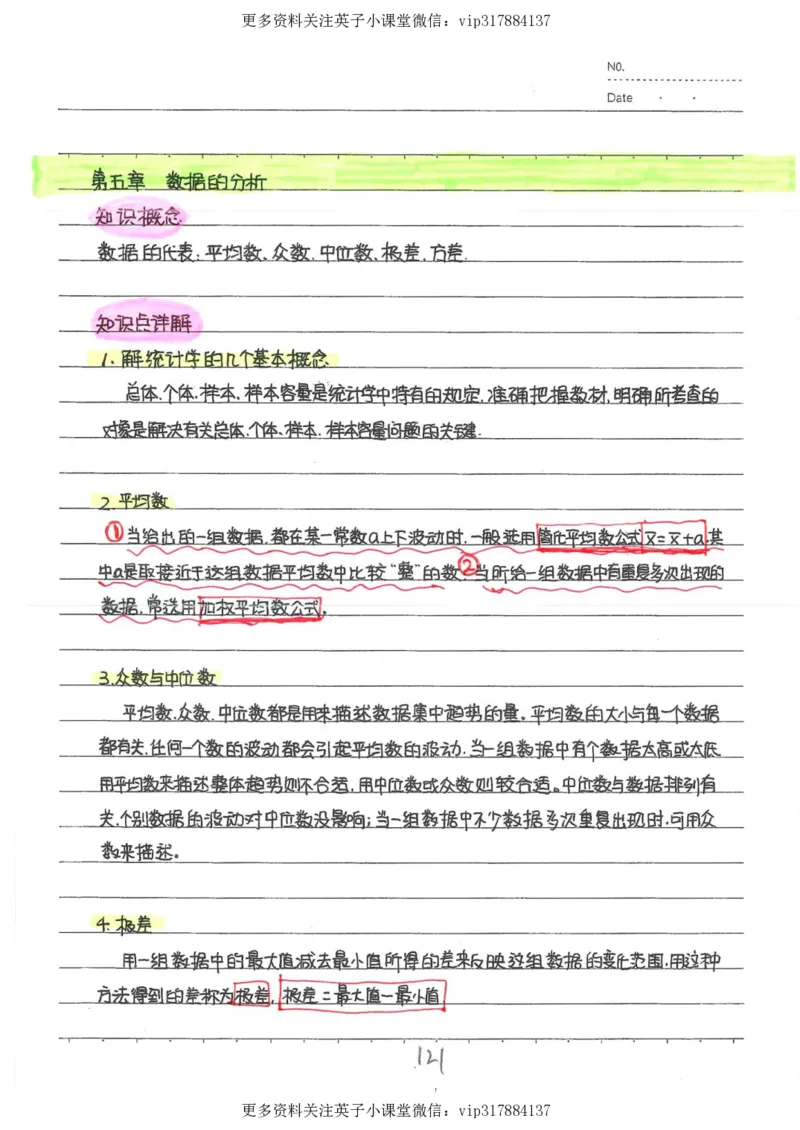 更多资料关注英子小课堂微信：vip317884137
NO.
Date · ·
第五章 数据的分析
知识概念
数据的代表：平均数、众数、中位数、极差、方差.
知识点详解
1.解统计学的几个基本概念
总体、个体、样本、样本容量是统计学中特有的规定，准确把握教材，明确所考查的
对象是解决有关总体、个体、样本、样本容量问题的关键.
2.平均数
①当给出的一组数据，都在某一常数a上下波动时，一般选用简化平均数公式x̄=x̄+a,其
中a是取接近于这组数据平均数中比较“整”的数；②当所给一组数据中有重复多次出现的
数据，常选用加权平均数公式。
3.众数与中位数
平均数、众数、中位数都是用来描述数据集中趋势的量。平均数的大小与每一个数据
都有关，任何一个数的波动都会引起平均数的波动，当一组数据中有个数据太高或太低，
用平均数来描述整体趋势则不合适，用中位数或众数则较合适。中位数与数据排列有
关，个别数据的波动对中位数没影响；当一组数据中不少数据多次重复出现时，可用众
数来描述。
4.极差
用一组数据中的最大值减去最小值所得的差来反映这组数据的变化范围，用这种
方法得到的差称为极差，极差＝最大值－最小值
121
更多资料关注英子小课堂微信：vip317884137